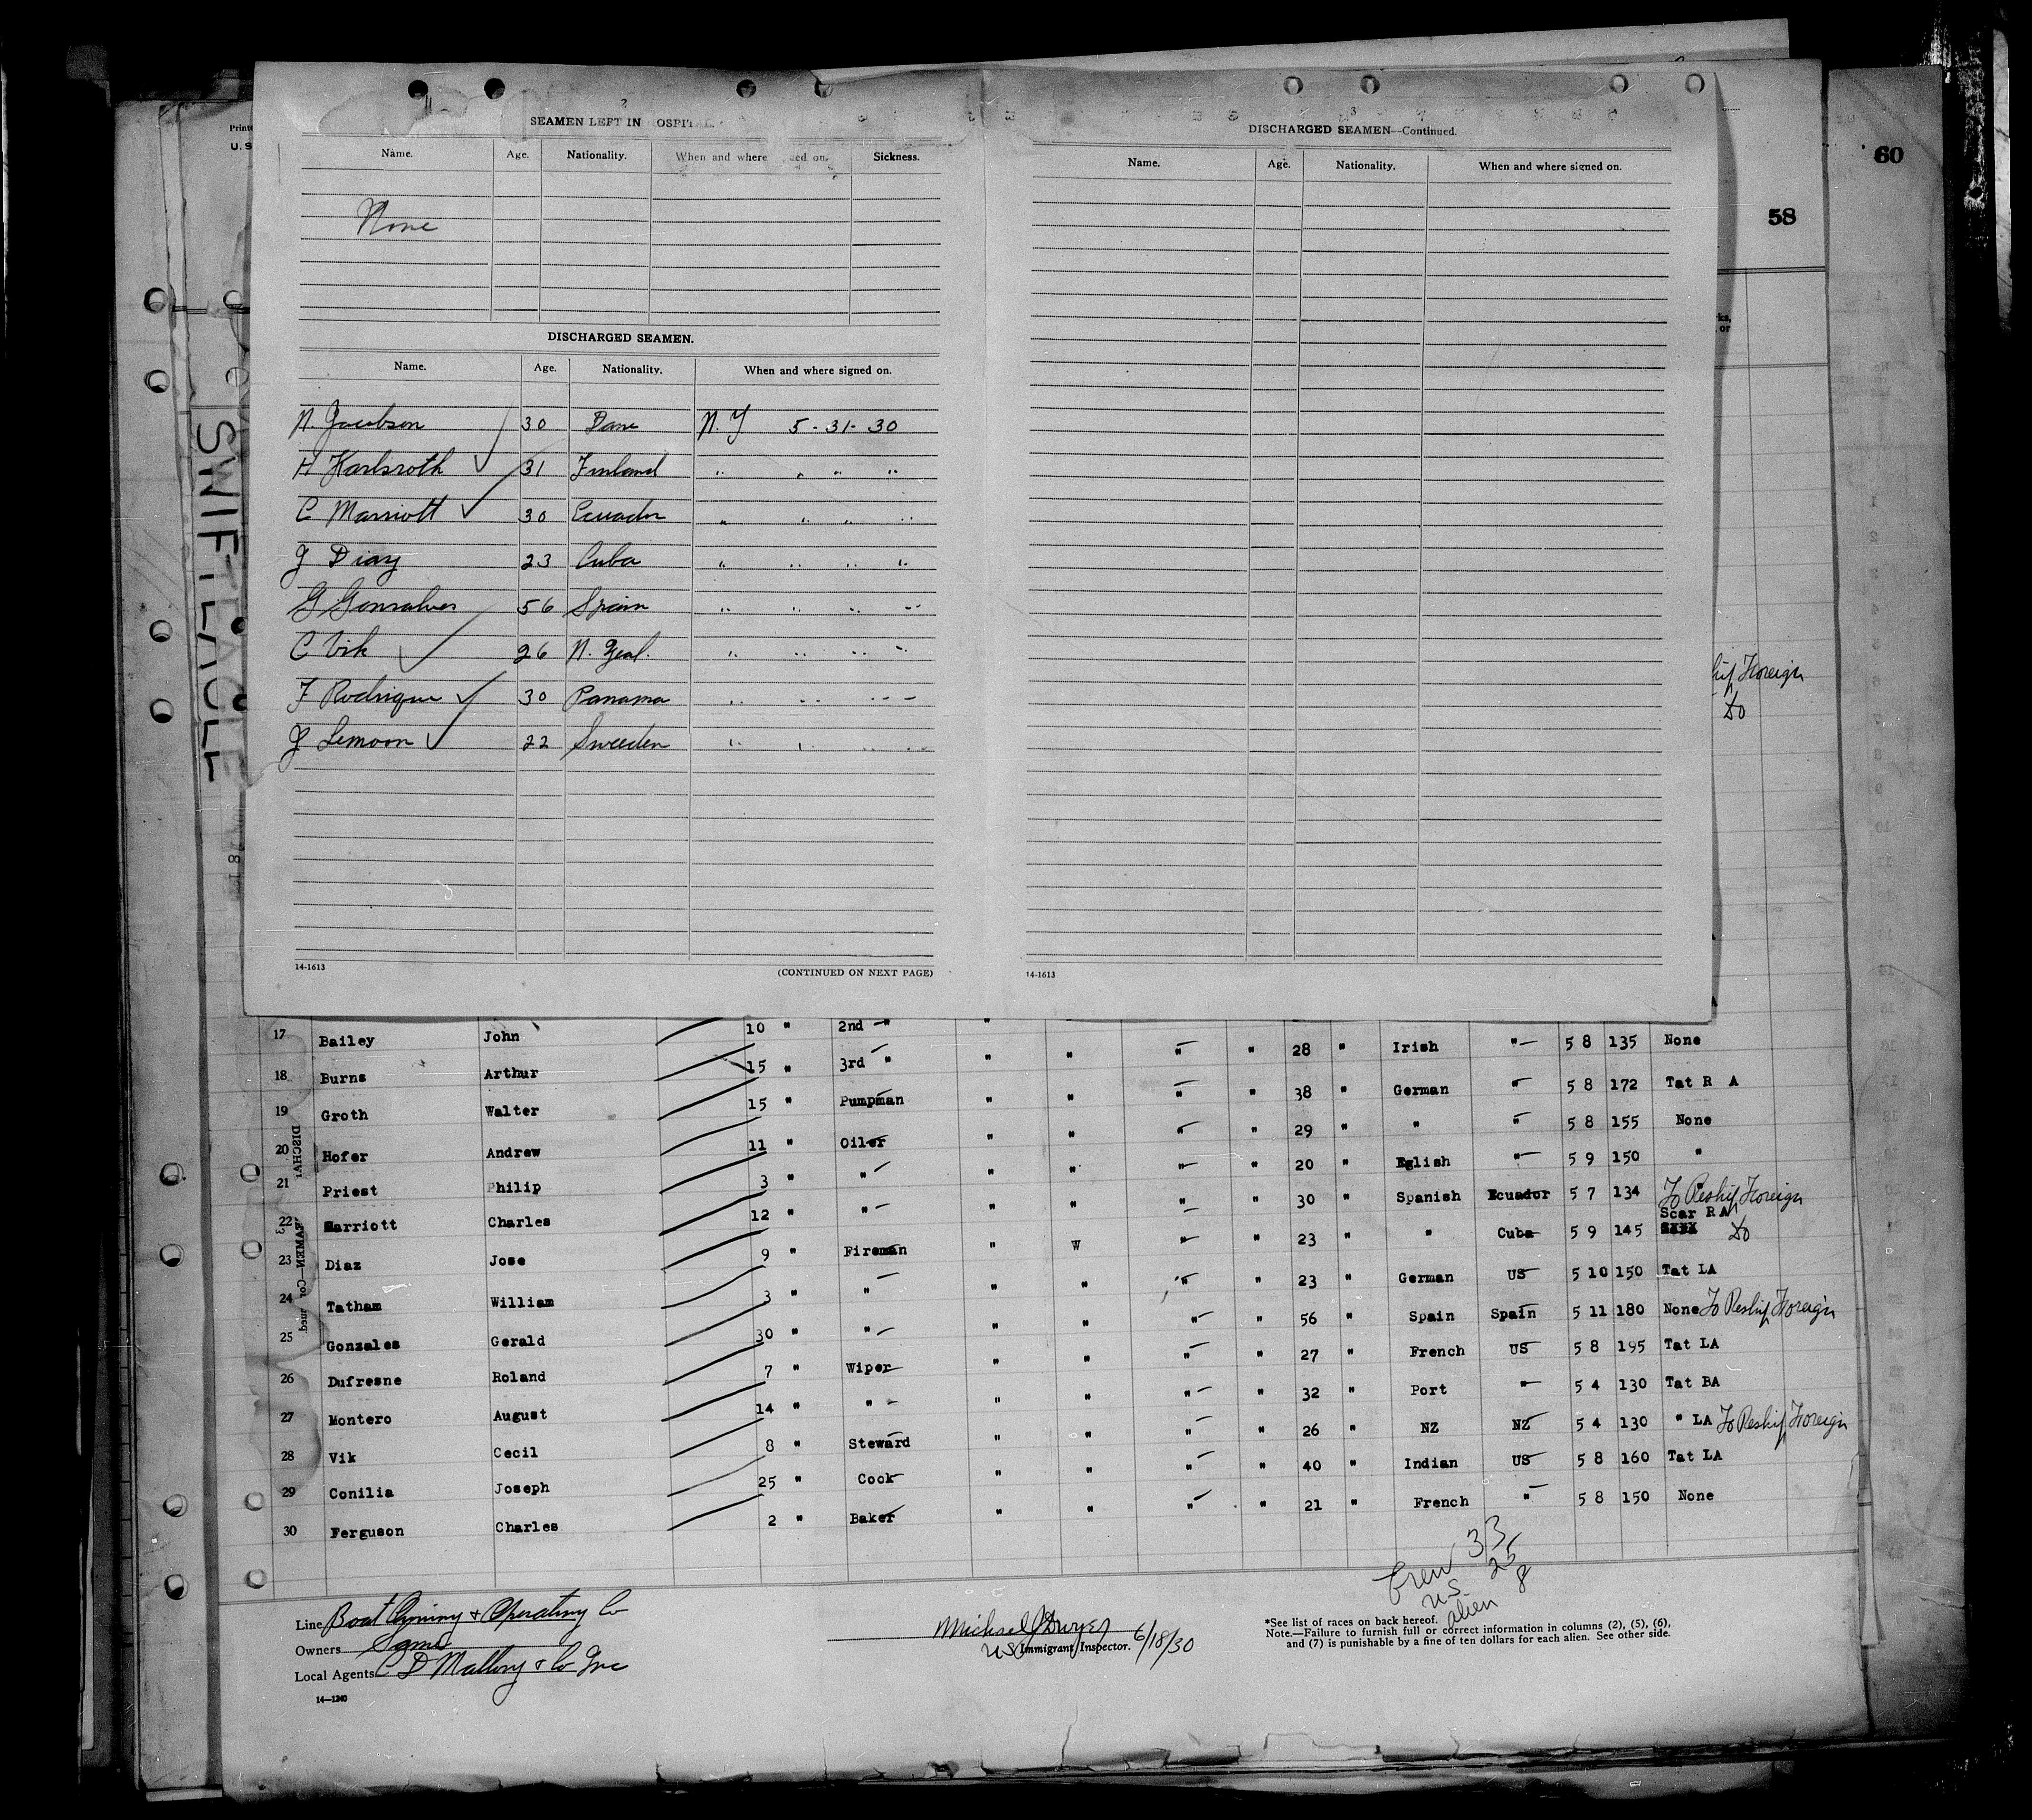 60
58
Printe
U. S
SWIFTEAGLE
2
SEAMEN LEFT IN OSPIT
Name. Age. Nationality. When and where ed on. Sickness.
None
DISCHARGED SEAMEN.
Name. Age. Nationality. When and where signed on.
N. Jacobson 30 Dane N. Y 5 - 31 - 30
H Karlsroth 31 Finland " " " "
C Marriott 30 Ecuador " " " "
J Diaz 23 Cuba " " " "
G Gonsalves 56 Spain " " " "
C Vik 26 N. Zeal. " " " "
F Rodrique 30 Panama " " " "
J Lemoon 22 Sweeden " " " "
14-1613 (CONTINUED ON NEXT PAGE)
3
DISCHARGED SEAMEN—Continued.
Name. Age. Nationality. When and where signed on.
14-1613
ks,
or
hip Foreign
Do
17 Bailey John 10 " 2nd " " 28 " Irish " 5 8 135 None
18 Burns Arthur 15 " 3rd " " " " " 38 " German " 5 8 172 Tat R A
19 Groth Walter 15 " Pumpman " " " " 29 " " " 5 8 155 None
20 Hofer Andrew 11 " Oiler " " " " 20 " Eglish " 5 9 150 "
21 Priest Philip 3 " " " " " " 30 " Spanish Ecuador 5 7 134 To Reship Foreign
22 Marriott Charles 12 " " " " " " 23 " " Cuba 5 9 145 Scar R A Do
23 Diaz Jose 9 " Fireman " W " " 23 " German US 5 10 150 Tat LA
24 Tatham William 3 " " " " " " 56 " Spain Spain 5 11 180 None To Reship Foreign
25 Gonzales Gerald 30 " " " " " " 27 " French US 5 8 195 Tat LA
26 Dufresne Roland 7 " Wiper " " " " 32 " Port " 5 4 130 Tat BA
27 Montero August 14 " " " " " " 26 " NZ NZ 5 4 130 " LA To Reship Foreign
28 Vik Cecil 8 " Steward " " " " 40 " Indian US 5 8 160 Tat LA
29 Conilia Joseph 25 " Cook " " " " 21 " French " 5 8 150 None
30 Ferguson Charles 2 " Baker " " "
Crew 33
U.S. 25
alien 8
Line Boat Owning & Operating Co
Owners Same
Local Agents C D Mallory & Co Inc
14—1240
Michael J Dwyer 6/18/30
US Immigrant Inspector.
*See list of races on back hereof.
Note.—Failure to furnish full or correct information in columns (2), (5), (6),
and (7) is punishable by a fine of ten dollars for each alien. See other side.